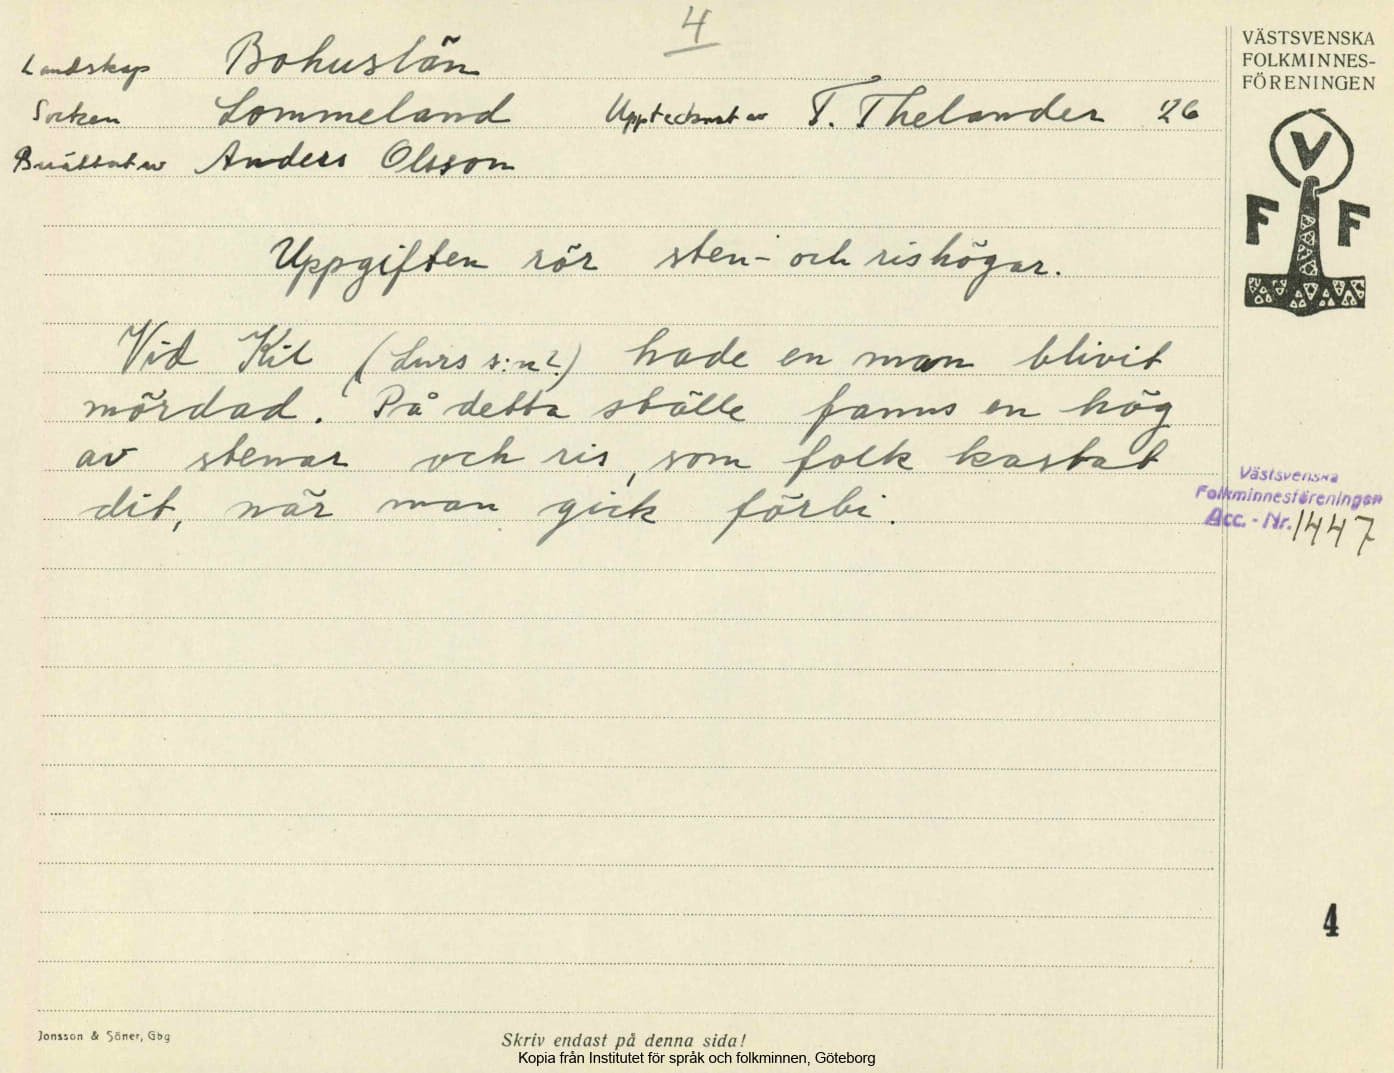 4
Landskap Bohuslän
Socken Lommeland Upptecknat av F. Thelander 26
Berättat av Anders Olsson
VÄSTSVENSKA
FOLKMINNES-
FÖRENINGEN
V
F F
Uppgiften rör sten- och rishögar.
Vid Kil (Lurs s:n?) hade en man blivit
mördad. På detta ställe fanns en hög
av stenar och ris, som folk kastat
dit, när man gick förbi.
Västsvenska
Folkminnesföreningen
Acc. - Nr. 1447
4
Jonsson & Söner, Gbg
Skriv endast på denna sida!
Kopia från Institutet för språk och folkminnen, Göteborg